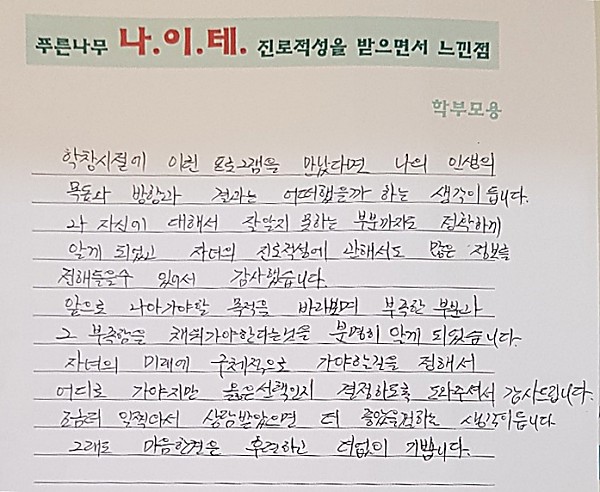 푸른나무 나.이.테. 진로적성을 받으면서 느낀점
학부모용
학창시절에 이런 프로그램을 만났다면 나의 인생의
목동과 방향과 결과는 어떠했을까 하는 생각이 듭니다.
나 자신에 대해서 잘알지 못하는 부분까지도 정확하게
알게 되었고 자녀의 진로적성에 관해서도 많은 정보를
전해들을수 있어서 감사했습니다.
앞으로 나아가야할 목적을 바라보며 부족한 부분과
그 부족함을 채워가야한다는것을 분명히 알게 되었습니다.
자녀의 미래에 구체적으로 가야할길을 전해서
어디로 가야지만 옳은선택인지 결정하도록 도와주셔서 감사드립니다.
조금더 일찍와서 상담받았으면 더 좋았을걸하는 생각이듭니다
그래도 마음한켠은 후련하고 더없이 기쁩니다.